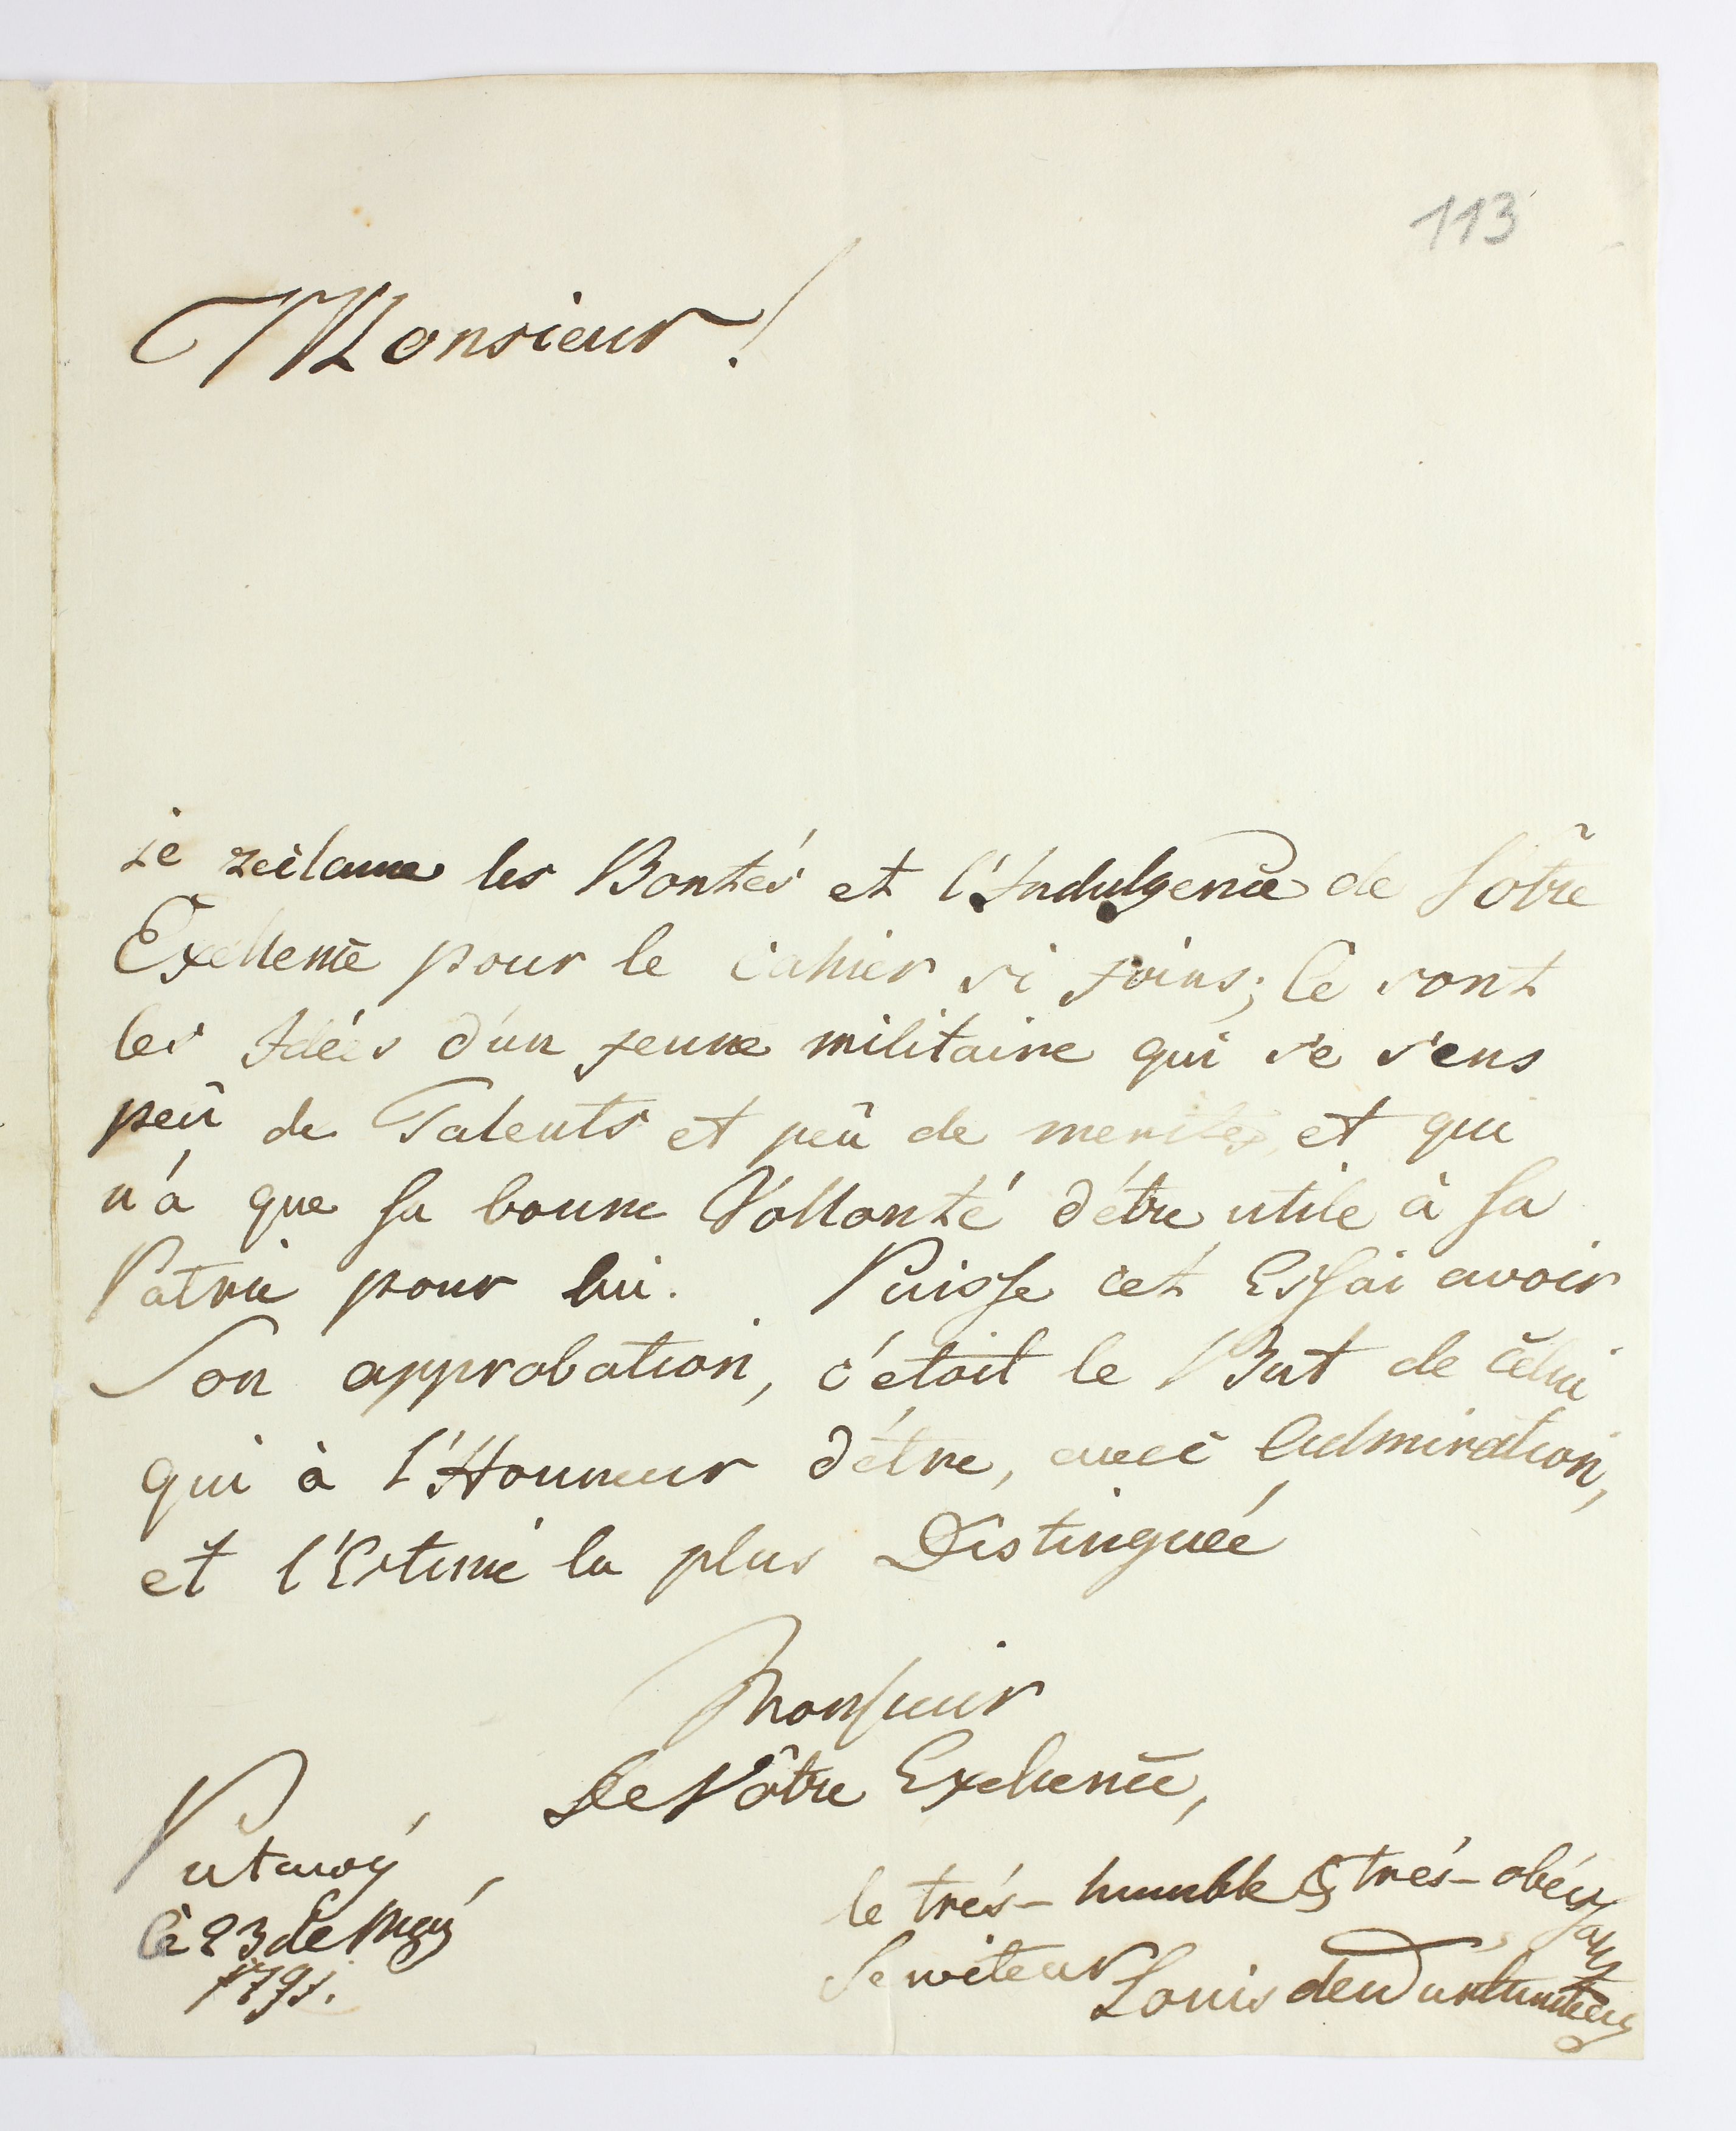 113
Monsieur!
je reclame les Bontés et l'Indulgence de Vôtre
Excellence pour le cahier si joins; Ce sont
les Idées d'un jeune militaire qui se sens
peû de Talents et peû de merites, et qui
n'a que sa bonne Vollonté d'étre utile à sa
Patrie pour lui. Puisse cet Essai avoir
Son approbation, c'etoit le But de celui
qui à l'Honneur d'étre, avec l'admiration,
et l'Estime la plus Distinguée
Monsieur
De Vôtre Excellence,
Putawÿ
le 23 de May
1791.
le trés-humble & trés-obéissant
Serviteur Louis de Wurtemberg